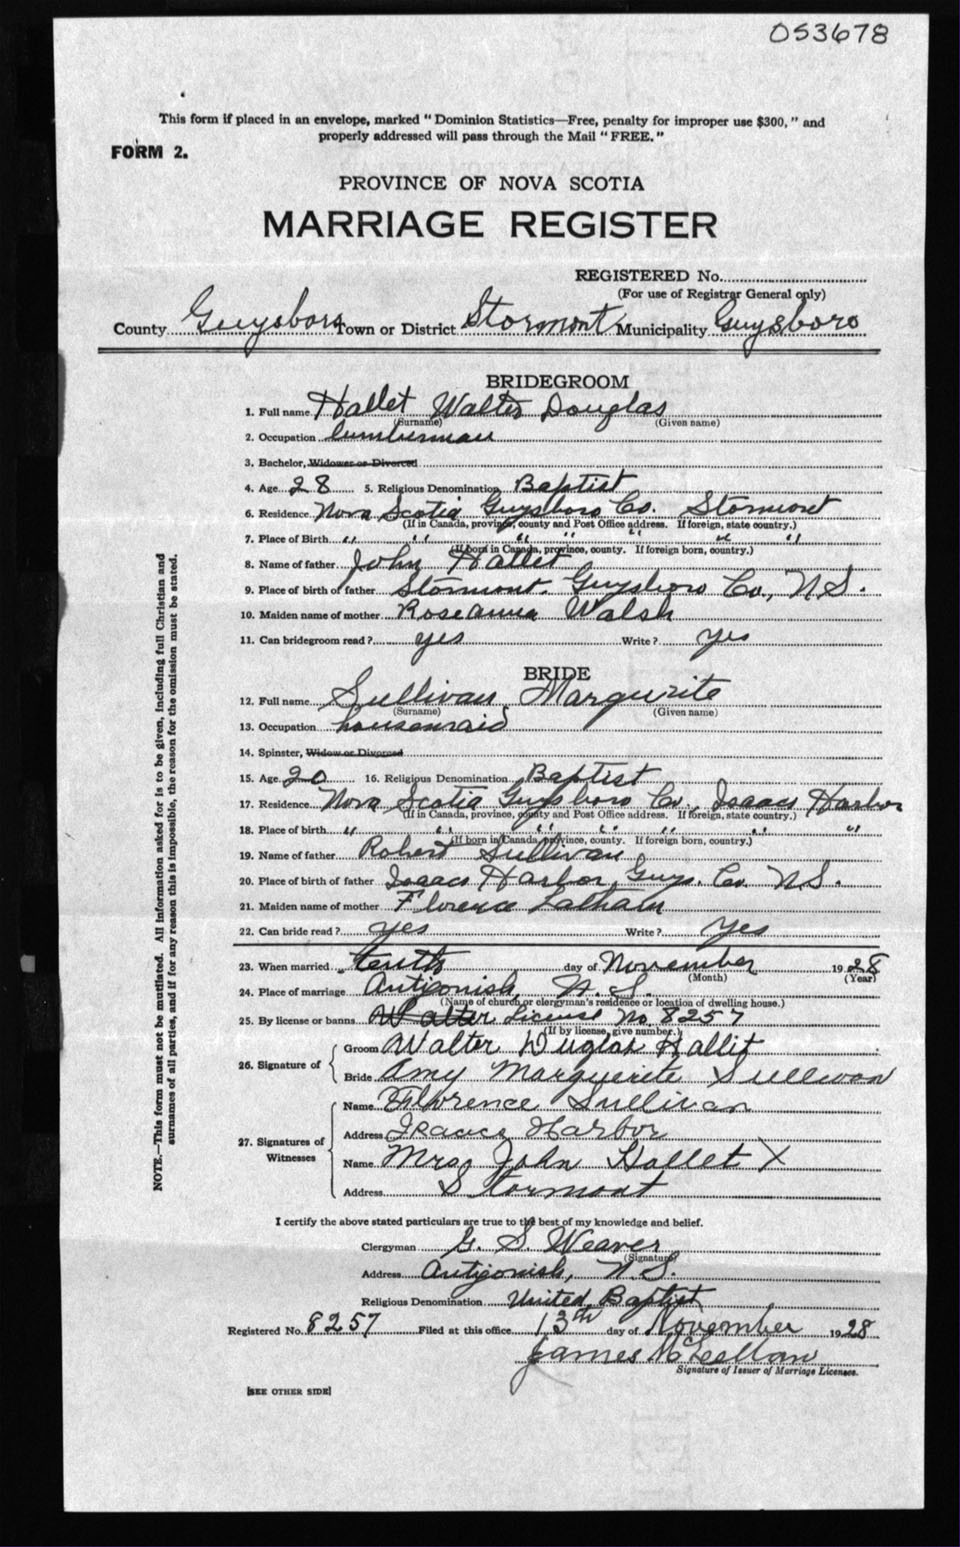 053678
This form if placed in an envelope, marked "Dominion Statistics—Free, penalty for improper use $300," and
properly addressed will pass through the Mail "FREE."
FORM 2.
PROVINCE OF NOVA SCOTIA
MARRIAGE REGISTER
REGISTERED No.
(For use of Registrar General only)
County Guysboro Town or District Stormont Municipality Guysboro
BRIDEGROOM
1. Full name Hallet Walter Douglas
(Surname) (Given name)
2. Occupation lumberman
3. Bachelor, Widower or Divorced
4. Age 28 5. Religious Denomination Baptist
6. Residence Nova Scotia Guysboro Co. Stormont
(If in Canada, province, county and Post Office address. If foreign, state country.)
7. Place of Birth " " " " " " "
(If born in Canada, province, county. If foreign born, country.)
8. Name of father John Hallet
9. Place of birth of father Stormont. Guysboro Co., N.S.
10. Maiden name of mother Roseanna Walsh
11. Can bridegroom read? yes Write? yes
BRIDE
12. Full name Sullivan Margurite
(Surname) (Given name)
13. Occupation housemaid
14. Spinster, Widow or Divorced
15. Age 20 16. Religious Denomination Baptist
17. Residence Nova Scotia Guysboro Co., Isaacs Harbor
(If in Canada, province, county and Post Office address. If foreign, state country.)
18. Place of birth " " " " " " "
(If born in Canada, province, county. If foreign born, country.)
19. Name of father Robert Sullivan
20. Place of birth of father Isaacs Harbor, Guys. Co. N.S.
21. Maiden name of mother Florence Latham
22. Can bride read? yes Write? yes
23. When married tenth day of November 1928
(Month) (Year)
24. Place of marriage Antigonish, N.S.
(Name of church or clergyman's residence or location of dwelling house.)
25. By license or banns Walter License No. 8257
(If by license, give number.)
26. Signature of
Groom Walter Duglas Hallit
Bride Amy Marguerite Sullivan
27. Signatures of Witnesses
Name Florence Sullivan
Address Isaacs Harbor
Name Mrs John Hallet X
Address Stormont
I certify the above stated particulars are true to the best of my knowledge and belief.
Clergyman G. S. Weaver
(Signature)
Address Antigonish, N.S.
Religious Denomination United Baptist
Registered No. 8257 Filed at this office 13th day of November 1928
James McLellan
Signature of Issuer of Marriage Licenses.
[SEE OTHER SIDE]
NOTE.—This form must not be mutilated. All information asked for is to be given, including full Christian and
surnames of all parties, and if for any reason this is impossible, the reason for the omission must be stated.